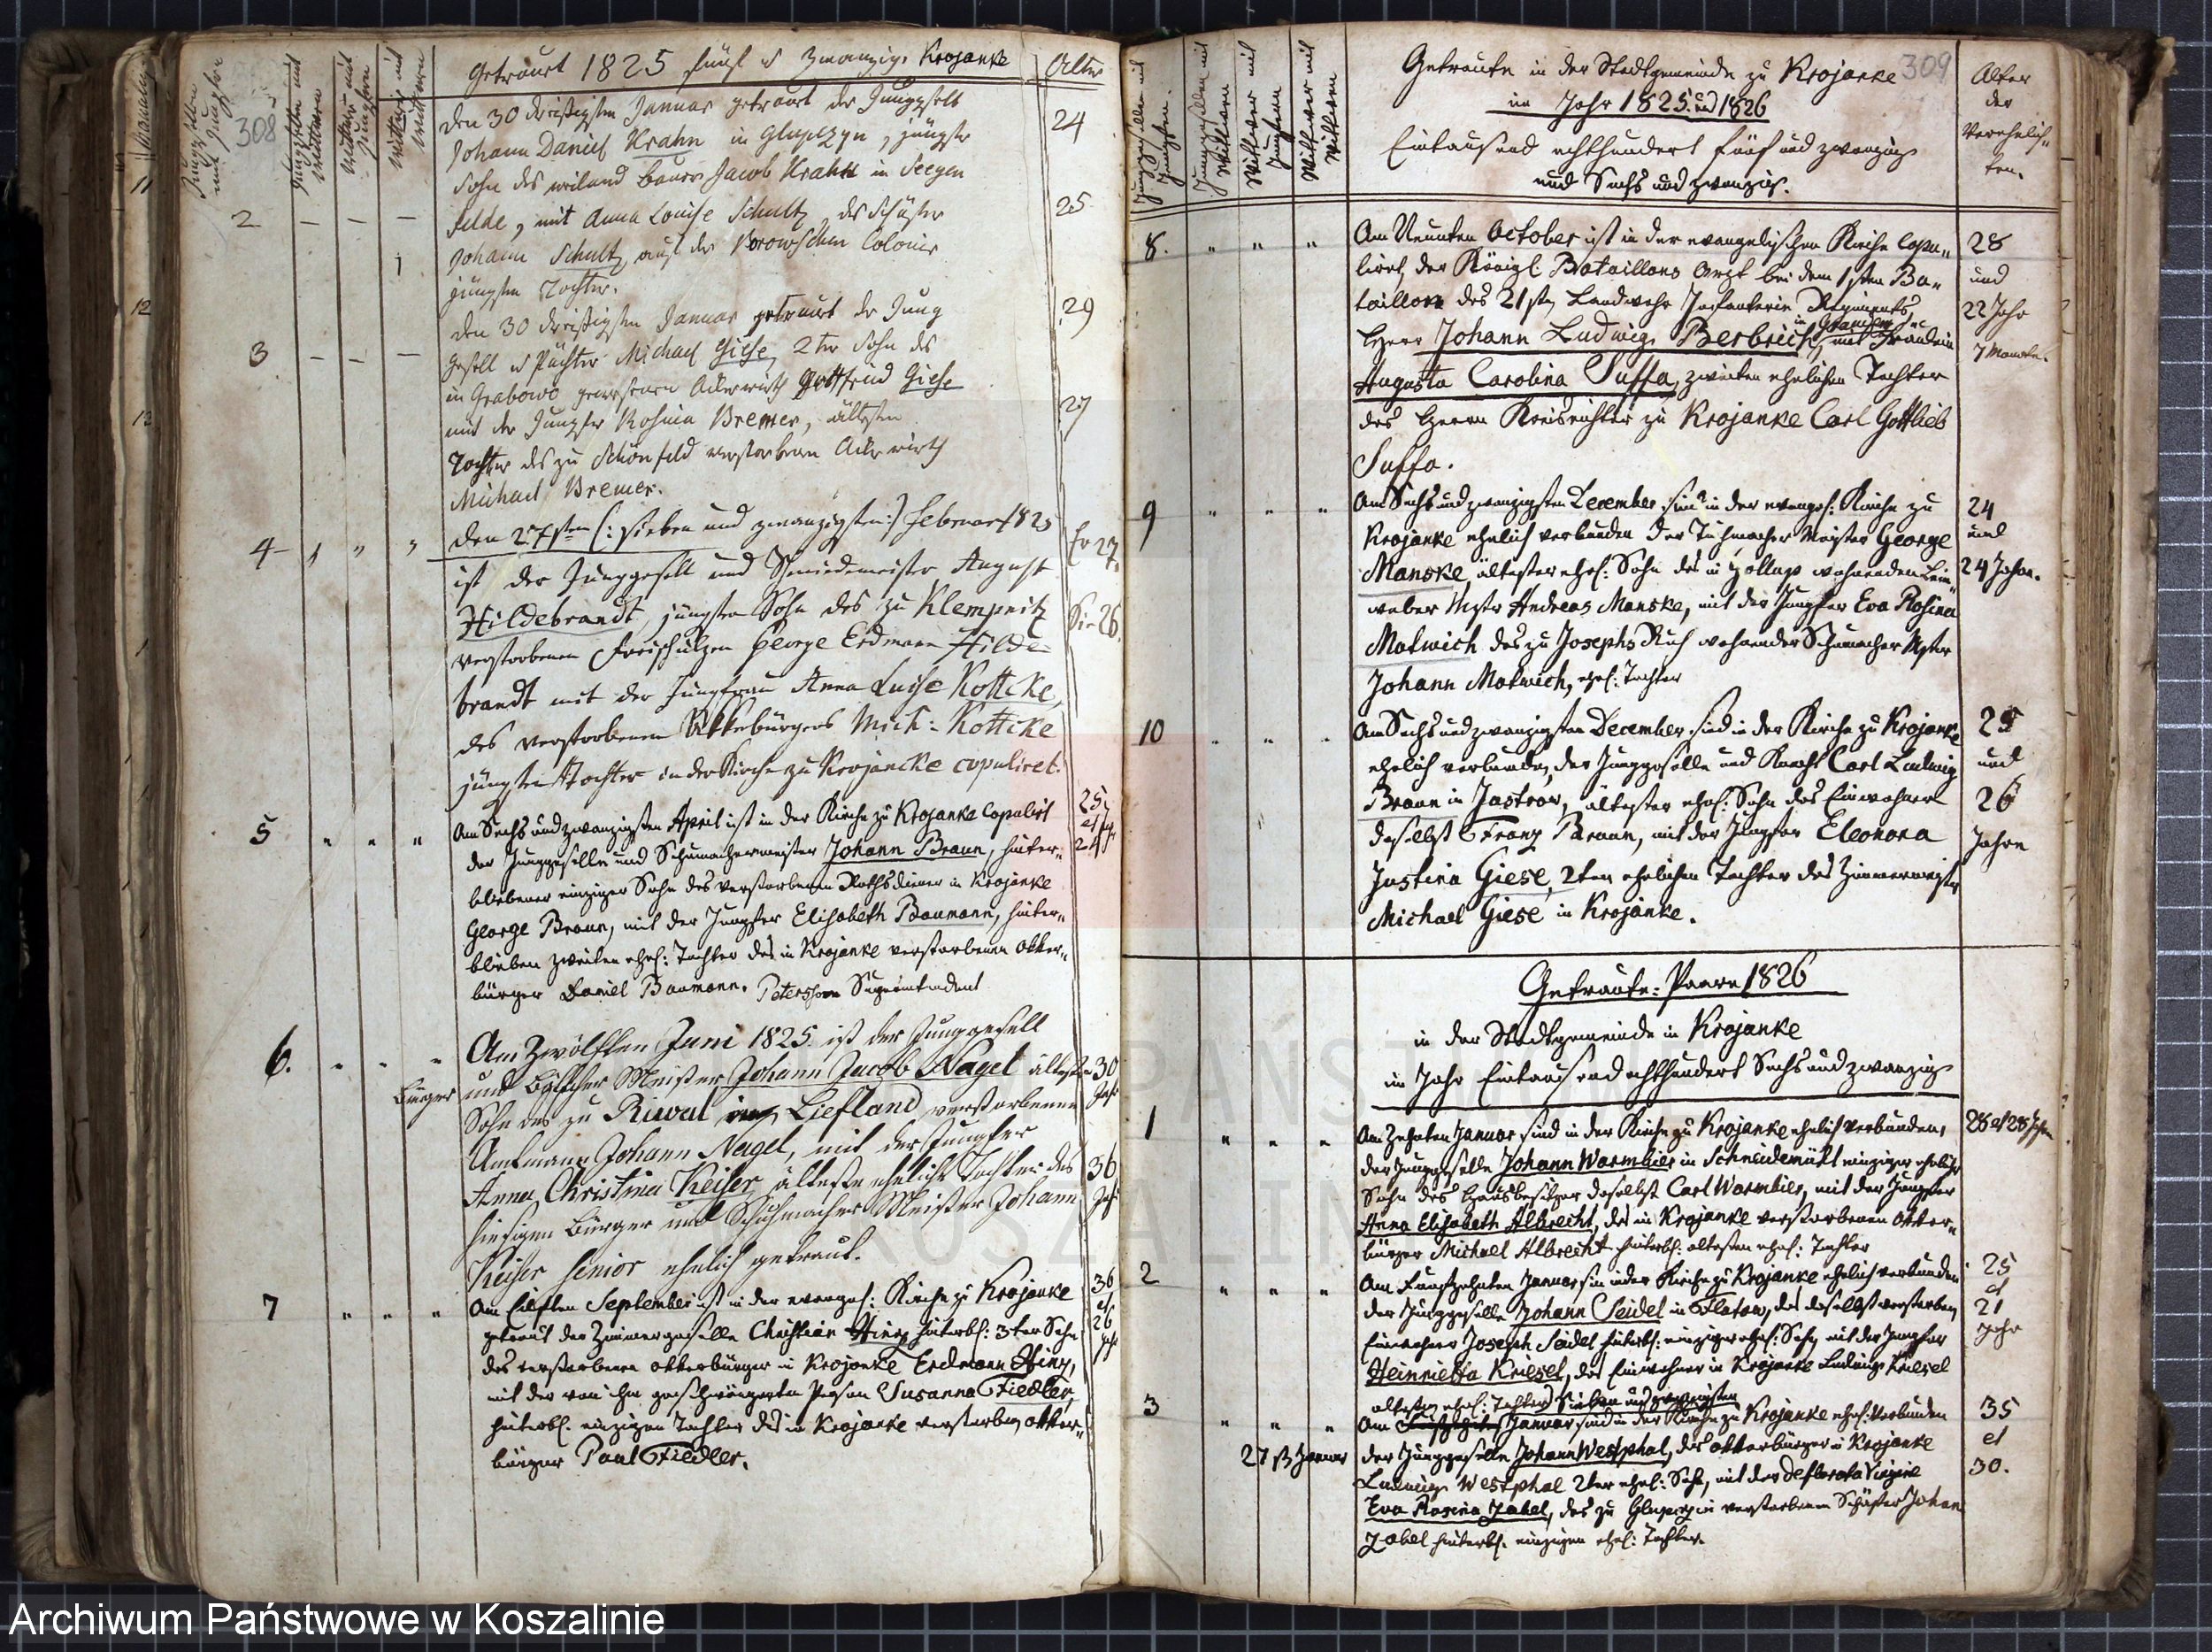 308
Junggesellen mit Jungfern
Junggesellen mit Wittwen
Wittwer mit Jungfern
Wittwer mit Wittwen
Getraut 1825 fünf u zwanzig. Krojanke
Alter
11
12
13
2 — — —
den 30 dreißigsten Januar getraut der Junggesell
24
Johann Daniel Krahn in Glupczyn, jüngste
Sohn des weiland Bauer Jacob Krahn in Seegen
felde, mit Anna Louise Schultz, des Schäfer
25
Johann Schultz aus der Borowschen Colonie
jüngsten Tochter.
3 — — —
den 30 dreißigsten Januar getraut der Jung
29
gesell u Pächter Michael Giese, 2ter Sohn des
in Grabowo gewesenen Ackerwirth Gottfried Giese
mit der Jungfer Rosina Bremer, ältesten
27
Tochter des zu Schönfeld verstorbenen Ackerwirth
Michael Bremer.
4
den 27sten (: sieben und zwanzigsten:) Februar 1825
Er 27.
ist der Junggesell und Schmiedemeister August
Hildebrandt, jüngster Sohn des zu Klempnitz
Sie 26.
verstorbenen Freischulzen George Erdmann Hilde-
brandt mit der Jungfrau Anna Luise Kottcke,
des verstorbenen Ackerbürgers Mich: Kottcke
jüngsten Tochter in der Kirche zu Krojancke copuliret.
5 " " "
Am Sechs und zwanzigsten April ist in der Kirche zu Krojanke Copulirt
25
et
24 J.
der Junggeselle und Schumachermeister Johann Braun, hinter„
bliebener einziger Sohn des verstorbenen Rathsdiener in Krojanke
George Braun, mit der Jungfer Elisabeth Baumann, hinter„
blieben zweiten ehel: Tochter des in Krojanke verstorbenen Acker„
bürger Daniel Baumann. Peterssen Superintendent
6. " " "
Am Zwölften Juni 1825 ist der Junggesell
Bürger und Böttcher Meister Johann Jacob Nagel ältester
30
Jah
Sohn des zu Riwal in Liefland verstorbenen
Amtmann Johann Nagel, mit der Jungfer
Anna Christina Keiser, älteste ehelicht Tochter des
36
Jah
hiesigen Bürger und Schuhmacher Meister Johann
Keiser senior ehelich getraut.
7 " " "
Am Eilften September ist in der evangel: Kirche zu Krojanke
36
et
26
Jah
getraut der Zimmergeselle Christian Hinz hinterbl: 3ter Sohn
des verstorbenen Ackerbürger in Krojanke Erdmann Hinz,
mit der von ihm geschwängerten Person Susanna Fiedler,
hinterbl. einzigen Tochter des in Krojanke verstorbn Acker„
bürger Paul Fiedler.
309
Junggesellen mit Jungfern.
Junggesellen mit Wittwen
Wittwer mit Jungfern
Wittwer mit Wittwen
Getraute in der Stadtgemeinde zu Krojanke
im Jahr 1825. und 1826
Eintausend achthundert fünf und zwanzig
und Sechs und zwanzig.
Alter
der
Verehelich„
ten.
8. " " "
Am Neunten October ist in der evangelischen Kirche Copu„
28
und
22 Jahr
7 Monate.
lirt, der Königl Bataillons Arzt bei dem 1sten Ba„
taillon des 21stn Landwehr Infanterie Regiments,
Herr Johann Ludwig Berbrich, mit Fräulein
Augusta Carolina Suffa, zweiten ehelichen Tochter
des Herrn Kreisrichter zu Krojanke Carl Gottlieb
Suffa.
9 " " "
Am Sechs und zwanzigsten December sind in der evangel: Kirche zu
24
und
24 Jahr.
Krojanke ehelich verbunden der Tuchmacher Meister George
Manske, ältester ehel: Sohn des in Hollup wohnenden Lein„
weber Mstr Andreas Manske, mit der Jungfer Eva Rosina
Matwich des zu Josephs Ruh wohnender Schumacher Mstr
Johann Matwich, ehel: Tochter
10 " " "
Am Sechs und zwanzigsten December sind in der Kirche zu Krojanke
25
und
26
Jahre
ehelich verbunden, der Junggeselle und Knecht Carl Ludwig
Braun in Jastrow, ältester ehel: Sohn des Einwohner
daselbst Franz Braun, mit der Jungfer Eleonora
Justina Giese, 2ten ehelichen Tochter des Zimmermeistr
Michael Giese in Krojanke.
Getraute: Paare 1826
in der Stadtgemeinde in Krojanke
im Jahr Eintausend achthundert Sechs und zwanzig
1 " " "
Am Zehnten Januar sind in der Kirche zu Krojanke ehelich verbunden,
28 et 28 Jahr
der Junggeselle Johann Warmbier in Schneidemühl einziger ehelicher
Sohn des Hausbesitzer daselbst Carl Warmbier, mit der Jungfer
Anna Elisabeth Albrecht, des in Krojanke verstorbenen Acker„
bürger Michael Albrecht hinterbl. ältesten ehel: Tochter
2 " " "
Am Fünfzehnten Januar sin in der Kirche zu Krojanke ehelich verbunden
25
et
21
Jahr
der Junggeselle Johann Seidel in Flatow, des daselbst verstorben,
Einwohner Joseph Seidel hinterbl: einziger ehel: Sohn mit der Jungfer
Heinrietta Kriesel, des Einwohner in Krojanke Ludwig Kriesel
ältesten ehel: Tochter
3 " " "
Sieben und zwanzigsten
Am Januar sind in der Kirche zu Krojanke ehel: verbunden
35
et
30.
27 st Januar
der Junggeselle Johann Westphal, des Ackerbürger in Krojanke
Ludwig Westphal 2ter ehel: Sohn, mit der deflorata Virgine
Eva Rosina Zabel, des zu Glupczin verstorbenen Schäfer Johan
Zabel hinterbl. einzigen ehel: Tochter.
Archiwum Państwowe w Koszalinie